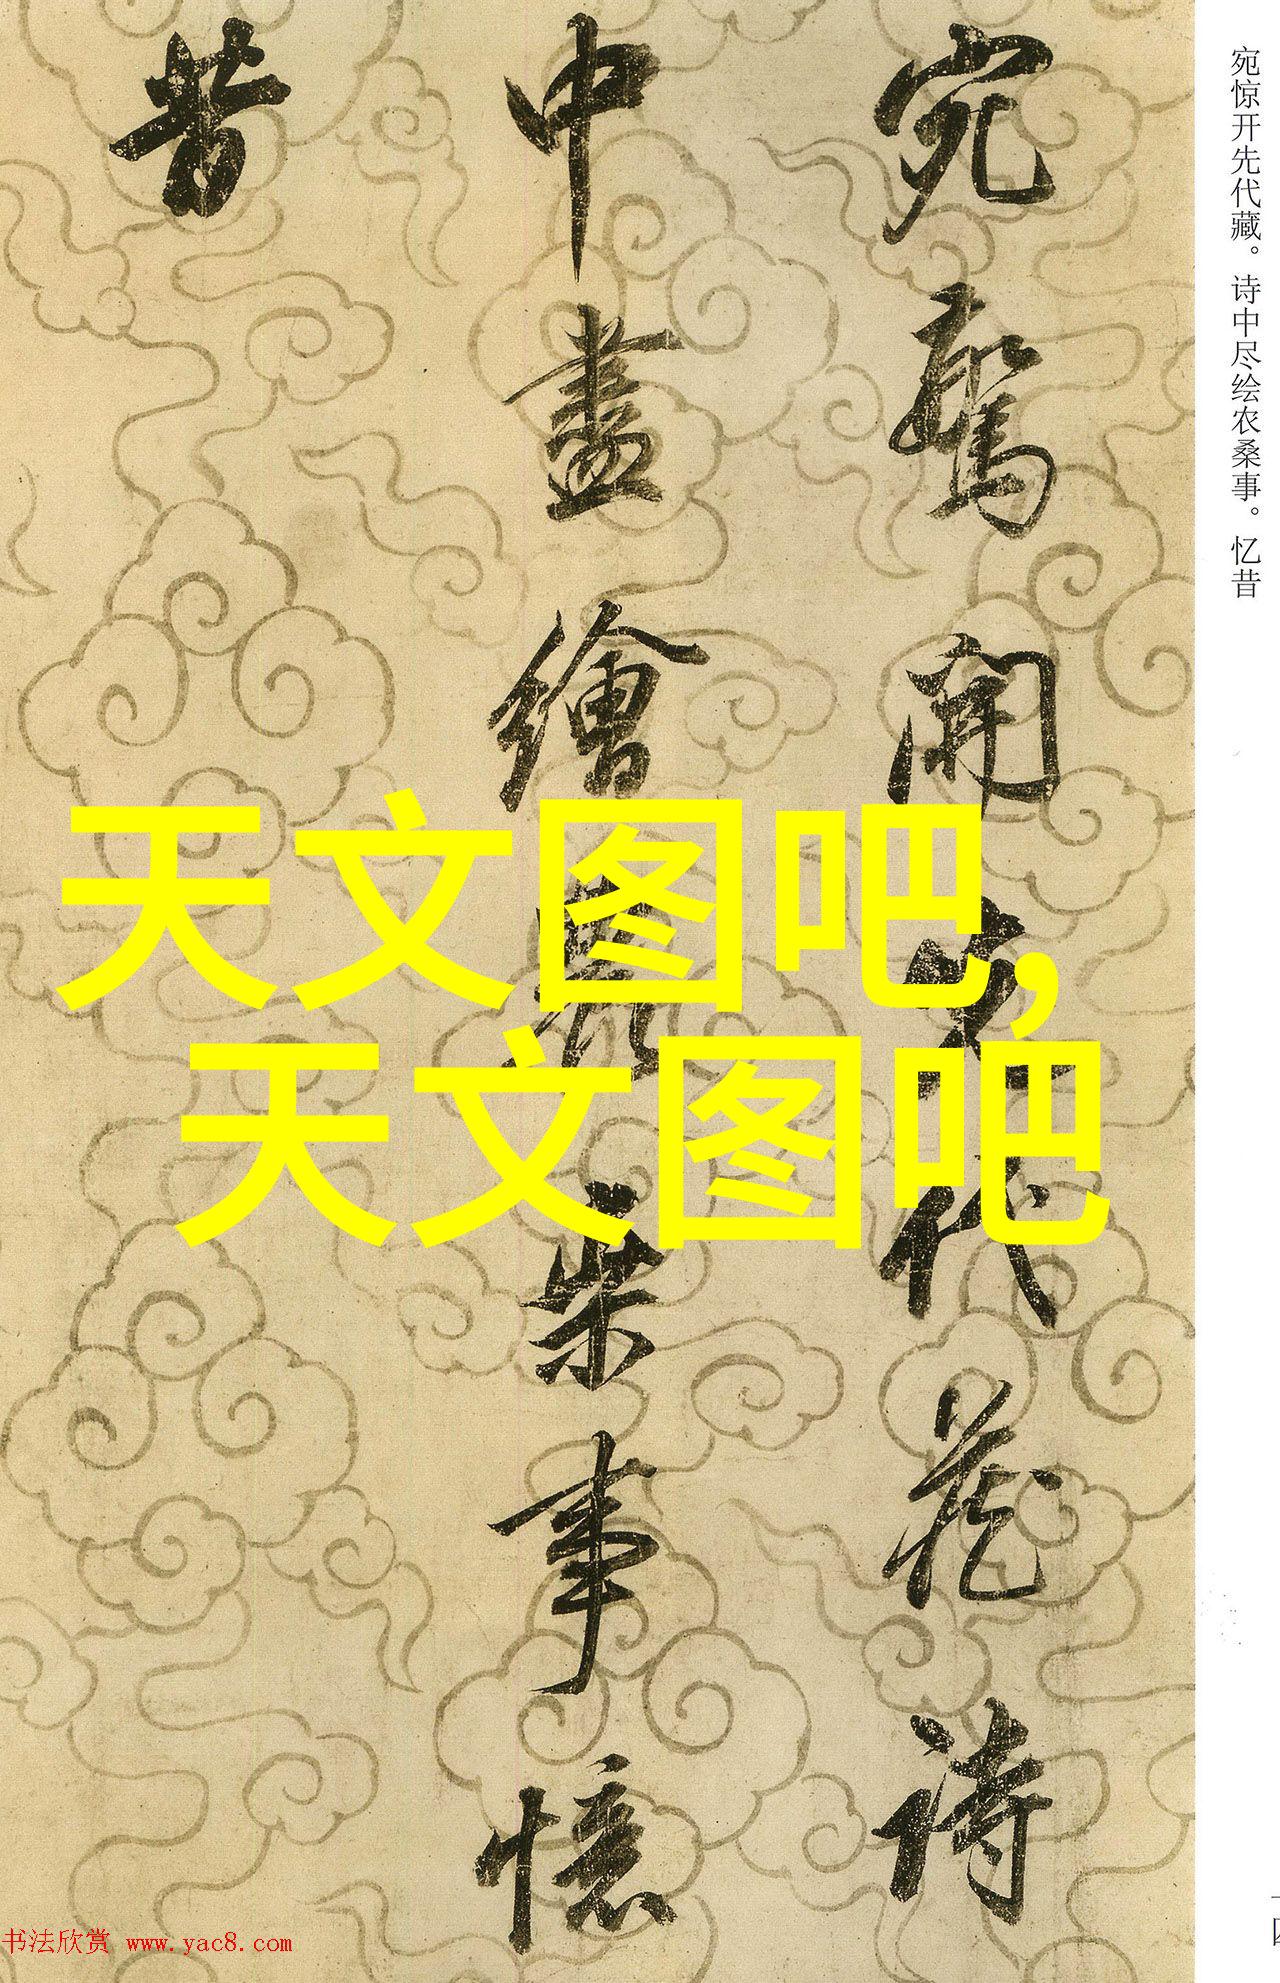 宛驚開先代藏詩
中盡繪農桑事憶
昔
宛惊开先代藏。诗中尽绘农桑事。忆昔
天文图吧,
天文图吧
书法欣赏 www.yac8.com